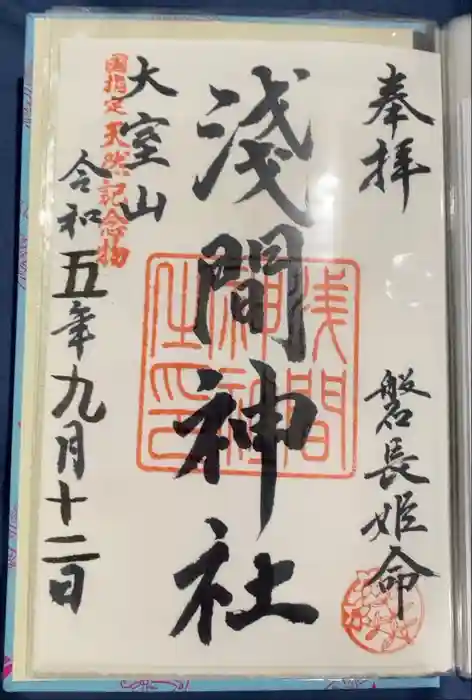 奉拝
磐長姫命
淺間神社
浅間
神社
之印
大室山
國指定天然記念物
令和五年九月十二日